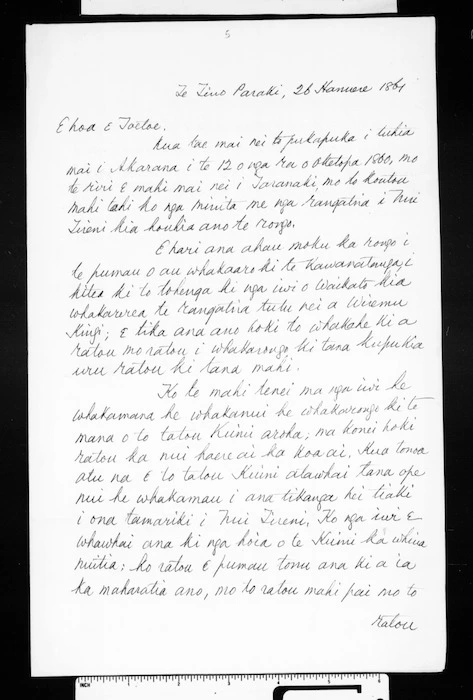 5
Te Tino Paraki, 26 Hanuere 1861
E hoa E Toetoe.
Kua tae mai nei to pukapuka i tuhia
mai i Akarana i te 12 o nga ra o Oketopa 1860, mo
te riri E mahi mai nei i Taranaki, mo to koutou
mahi tahi ko nga minita me nga rangatira i Nui
Tireni kia houhia ano te rongo.
E hari ana ahau moku ka rongo i
te pumau o au whakaaro ki te Kawanatanga, i
kitea ki to tohenga ki nga iwi o Waikato kia
whakarerea te rangatira tutu nei a Wiremu
Kingi; E tika ana ano hoki to whakahe ki a
ratou mo ratou i whakarongo ki tana kupu kia
uru ratou ki tana mahi.
Ko te mahi tenei ma nga iwi he
whakamana he whakanui he whakarongo ki te
mana o to tatou Kuini aroha; ma konei hoki
ratou ka nui haere ai ka koa ai, Kua tonoa
atu na E to tatou Kuini atawhai tana ope
nui he whakamau i ana tikanga hei tiaki
i ona tamariki i Nui Tireni, Ko nga iwi E
whawhai ana ki nga hoia o te Kuini ka whiua
nuitia; ko ratou E pumau tonu ana ki a ia
ka maharatia ano, mo to ratou mahi pai mo to
ratou
INCH